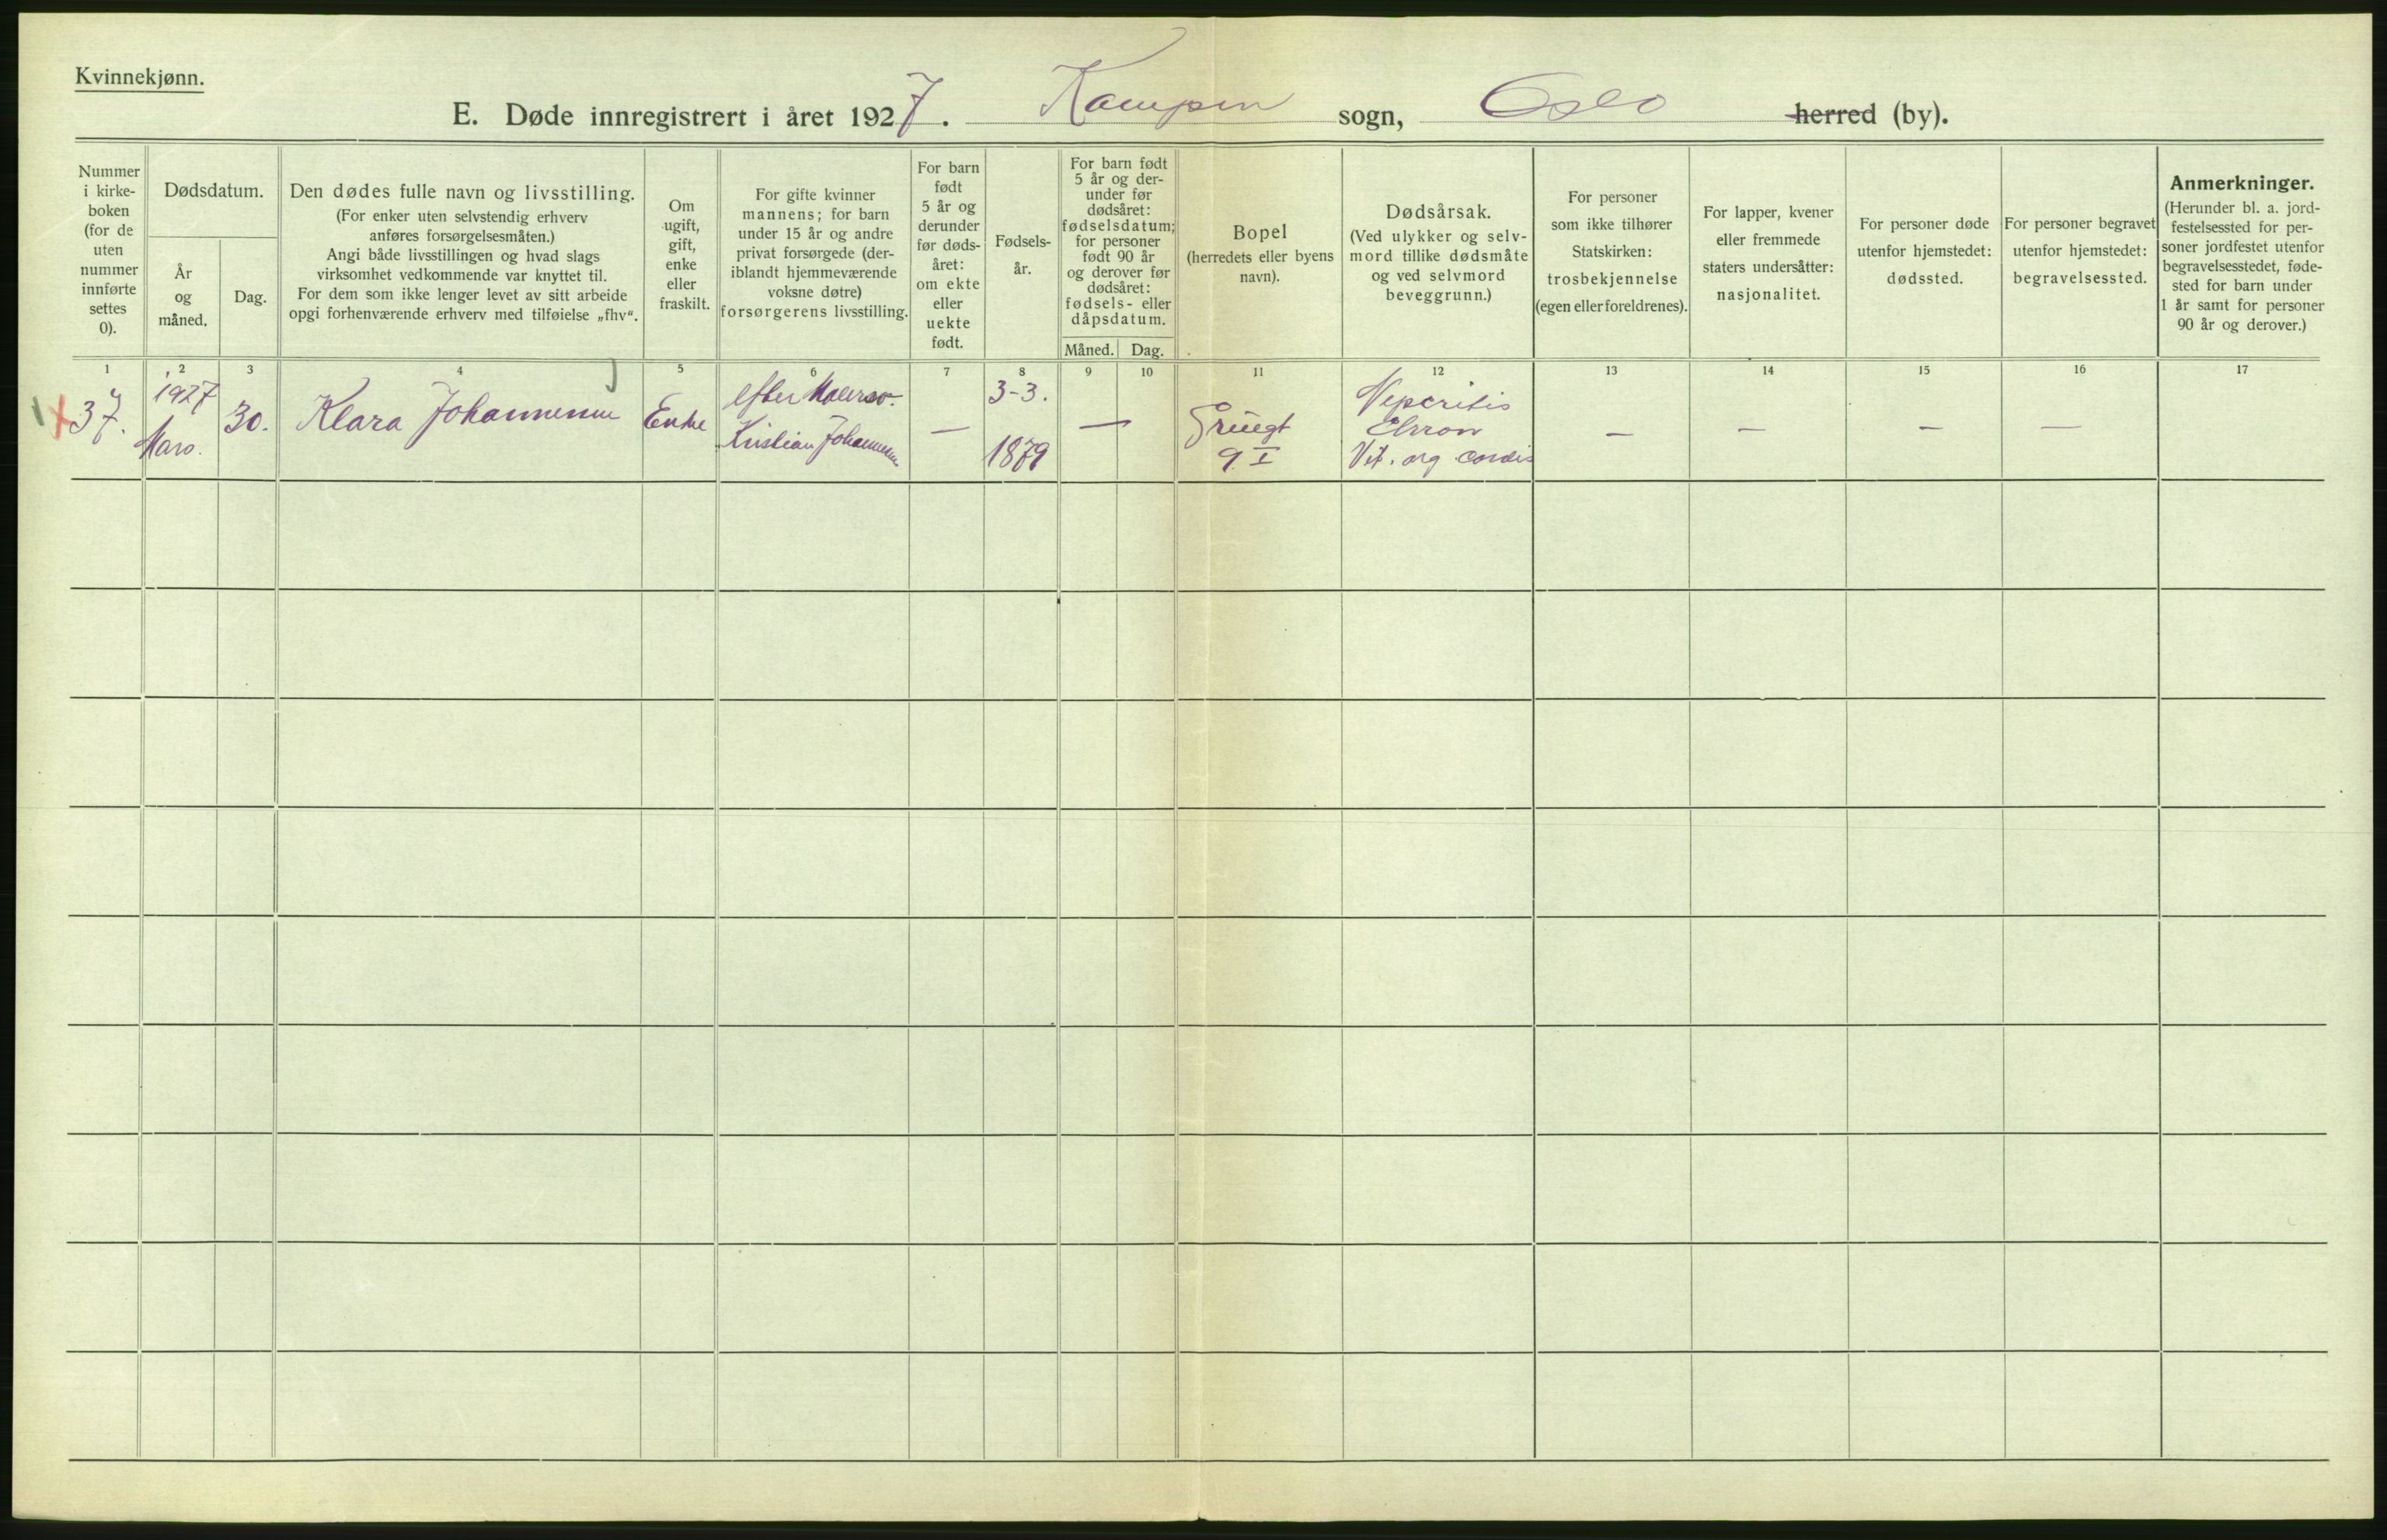 Kvinnekjønn.
E. Døde innregistrert i året 1927. Kampen sogn, Oslo herred (by).
Nummer
i kirke-
boken
(for de
uten
nummer
innførte
settes
0).
Dødsdatum.
År
og
måned.
Dag.
Den dødes fulle navn og livsstilling.
(For enker uten selvstendig erhverv
anføres forsørgelsesmåten.)
Angi både livsstillingen og hvad slags
virksomhet vedkommende var knyttet til.
For dem som ikke lenger levet av sitt arbeide
opgi forhenværende erhverv med tilføielse „fhv“.
Om
ugift,
gift,
enke
eller
fraskilt.
For gifte kvinner
mannens; for barn
under 15 år og andre
privat forsørgede (der-
iblandt hjemmeværende
voksne døtre)
forsørgerens livsstilling.
For barn
født
5 år og
derunder
før døds-
året:
om ekte
eller
uekte
født.
Fødsels-
år.
For barn født
5 år og der-
under før
dødsåret:
fødselsdatum;
for personer
født 90 år
og derover før
dødsåret:
fødsels- eller
dåpsdatum.
Måned. Dag.
Bopel
(herredets eller byens
navn).
Dødsårsak.
(Ved ulykker og selv-
mord tillike dødsmåte
og ved selvmord
beveggrunn.)
For personer
som ikke tilhører
Statskirken:
trosbekjennelse
(egen eller foreldrenes).
For lapper, kvener
eller fremmede
staters undersåtter:
nasjonalitet.
For personer døde
utenfor hjemstedet:
dødssted.
For personer begravet
utenfor hjemstedet:
begravelsessted.
Anmerkninger.
(Herunder bl. a. jord-
festelsessted for per-
soner jordfestet utenfor
begravelsesstedet, føde-
sted for barn under
1 år samt for personer
90 år og derover.)
1 2 3 4 5 6 7 8 9 10 11 12 13 14 15 16 17
37.
1927
Mars.
30.
Klara Johannesen
Enke
efter
Kristian Johannesen
—
3-3.
1879
—
9 I
Vit. org cordis
—
—
—
—